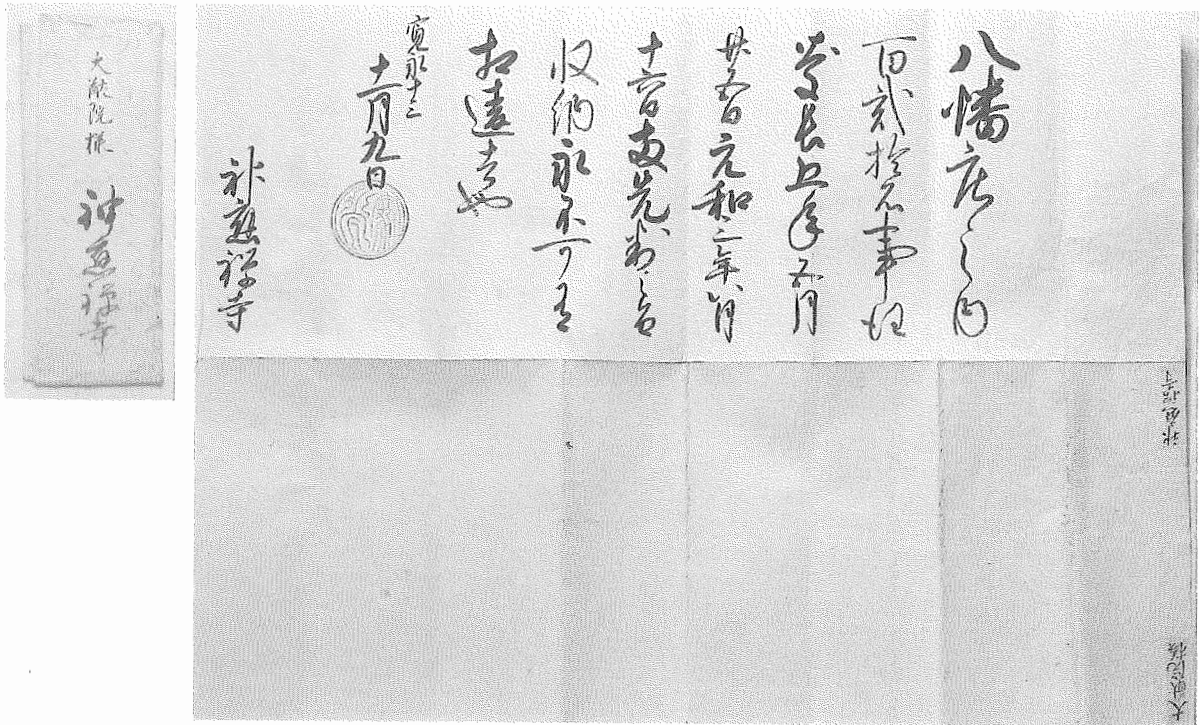 八幡庄之内
百弐拾石事任
慶長五年五月
廿五日元和三年八月
十六日両先判之旨
収納永不可有
相違者也
寛永十三
十一月九日
神應禅寺
大猷院様
神應禅寺
大猷院様
神應禅寺